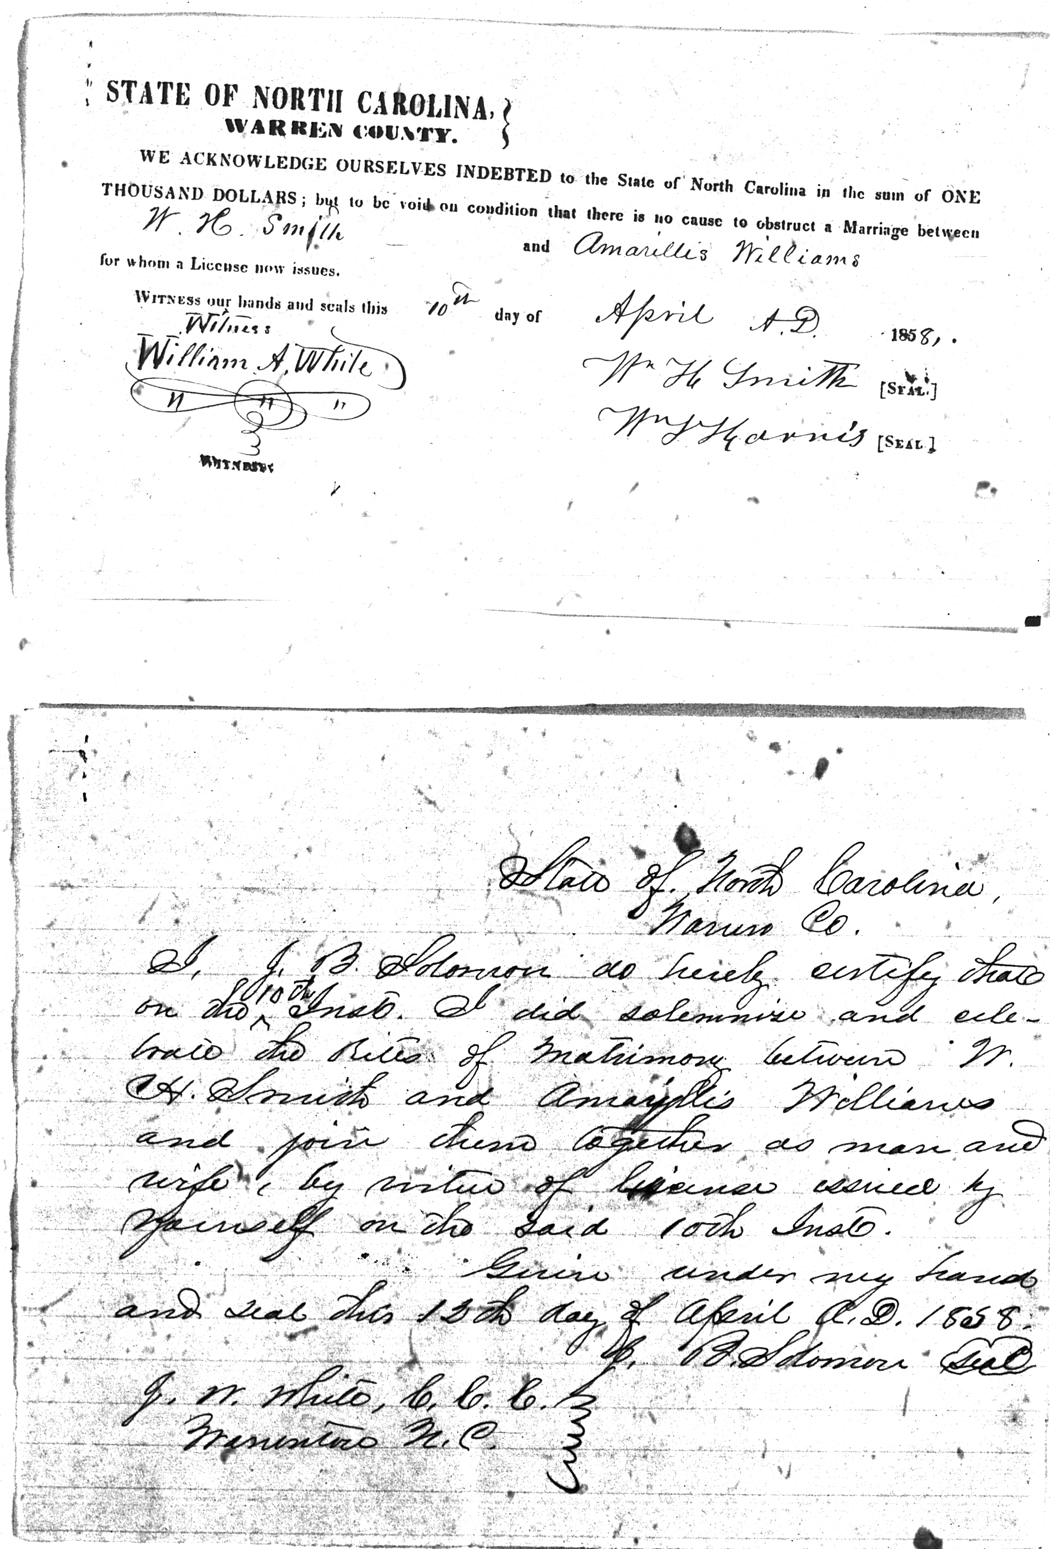 STATE OF NORTH CAROLINA,
WARREN COUNTY.
WE ACKNOWLEDGE OURSELVES INDEBTED to the State of North Carolina in the sum of ONE
THOUSAND DOLLARS; but to be void on condition that there is no cause to obstruct a Marriage between
W. H. Smith and Amarillis Williams
for whom a License now issues.
WITNESS our hands and seals this 10th day of April A.D. 1858,.
Witness
William A. White
Wm H Smith [SEAL.]
" " "
Wm Harris [SEAL]
WITNESS:
State of North Carolina,
Warren Co.
I, J. B. Solomon do hereby certify that
on the 10th Inst. I did solemnize and cele-
brate the Rites of Matrimony between W.
H. Smith and Amaryllis Williams
and join them together as man and
wife, by virtue of license issued by
yourself on the said 10th Inst.
Given under my hand
and seal this 12th day of April A.D. 1858.
J. B. Solomon seal
J. W. White, C. C. C.
Warrenton N. C.